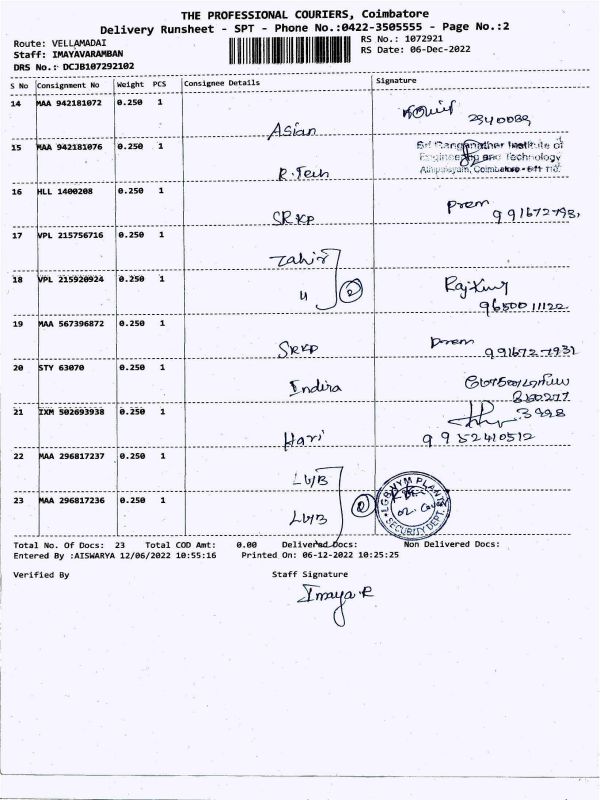 THE PROFESSIONAL COURIERS, Coimbatore
Delivery Runsheet - SPT - Phone No.:0422-3505555 - Page No.:2
Route: VELLAMADAI
Staff: IMAYAVARAMBAN
DRS No.: DCJB107292102
RS No.: 1072921
RS Date: 06-Dec-2022
S No Consignment No Weight PCS Consignee Details Signature
14 MAA 942181072 0.250 1 Asian 2340089
15 MAA 942181076 0.250 1 R.Tech Sri Ranganathar Institute of
Engineering and Technology
Athipalayam, Coimbatore - 641 110.
16 HLL 1400208 0.250 1 SRKP Prem
17 VPL 215756716 0.250 1 Zahir
18 VPL 215920924 0.250 1 11 2 Rajkumar
9650011122
19 MAA 567396872 0.250 1 SRKP Prem
991672-7931
20 STY 63070 0.250 1 Indira
21 IXM 502693938 0.250 1 Hari 9952410512
22 MAA 296817237 0.250 1 LGB
23 MAA 296817236 0.250 1 LGB 2 LGB NYM PLANT
SECURITY DEPT.
Total No. Of Docs: 23 Total COD Amt: 0.00 Delivered Docs: Non Delivered Docs:
Entered By :AISWARYA 12/06/2022 10:55:16 Printed On: 06-12-2022 10:25:25
Verified By Staff Signature
Imaya R